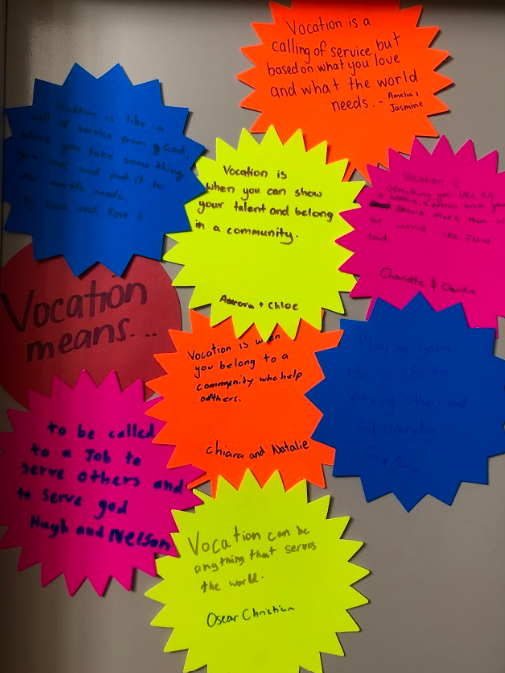 Vocation is a
calling of service, but
based on what you love
and what the world
needs. - Amelia &
Jasmine
Vocation is like a
call of service from God,
where you take something
you love and put it to
the world's needs.
By and Rose
Vocation is
when you can show
your talent and belong
in a community.
Aurora + Chloe
Vocation is
something you like e.g
a hobbie, passion and you
should share them w
the world like Jesus
said.
Charlotte &
Vocation
means...
Vocation is when
you belong to a
community who help
others.
Chiara and Natalie
your
role in life by
serving others and
God everyday
to be called
to a Job to
serve others and
to serve god
Hugh and Nelson
Vocation can be
anything that serves
the world.
Oscar Christian